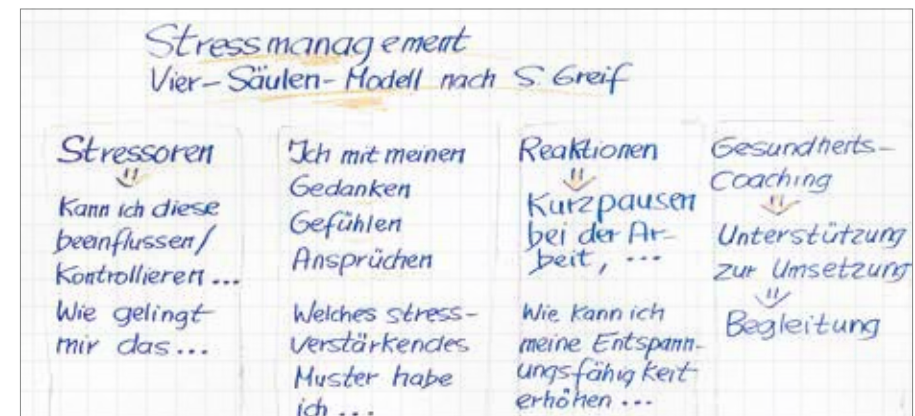 Stressmanagement
Vier-Säulen-Modell nach S. Greif
Stressoren
Kann ich diese
beeinflussen/
Kontrollieren ...
Wie gelingt
mir das ...
Ich mit meinen
Gedanken
Gefühlen
Ansprüchen
Welches stress-
verstärkendes
Muster habe
ich ...
Reaktionen
Kurzpausen
bei der Ar-
beit, ...
Wie kann ich
meine Entspann-
ungsfähigkeit
erhöhen ...
Gesundheits-
Coaching
Unterstützung
zur Umsetzung
Begleitung